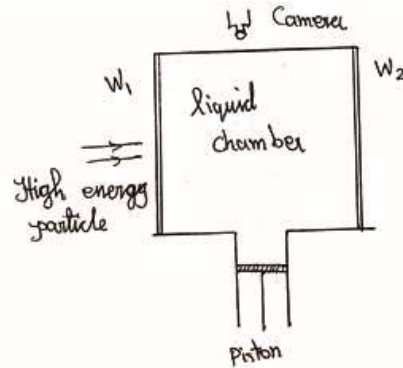 Camera
W1
W2
liquid
chamber
High energy
particle
Piston